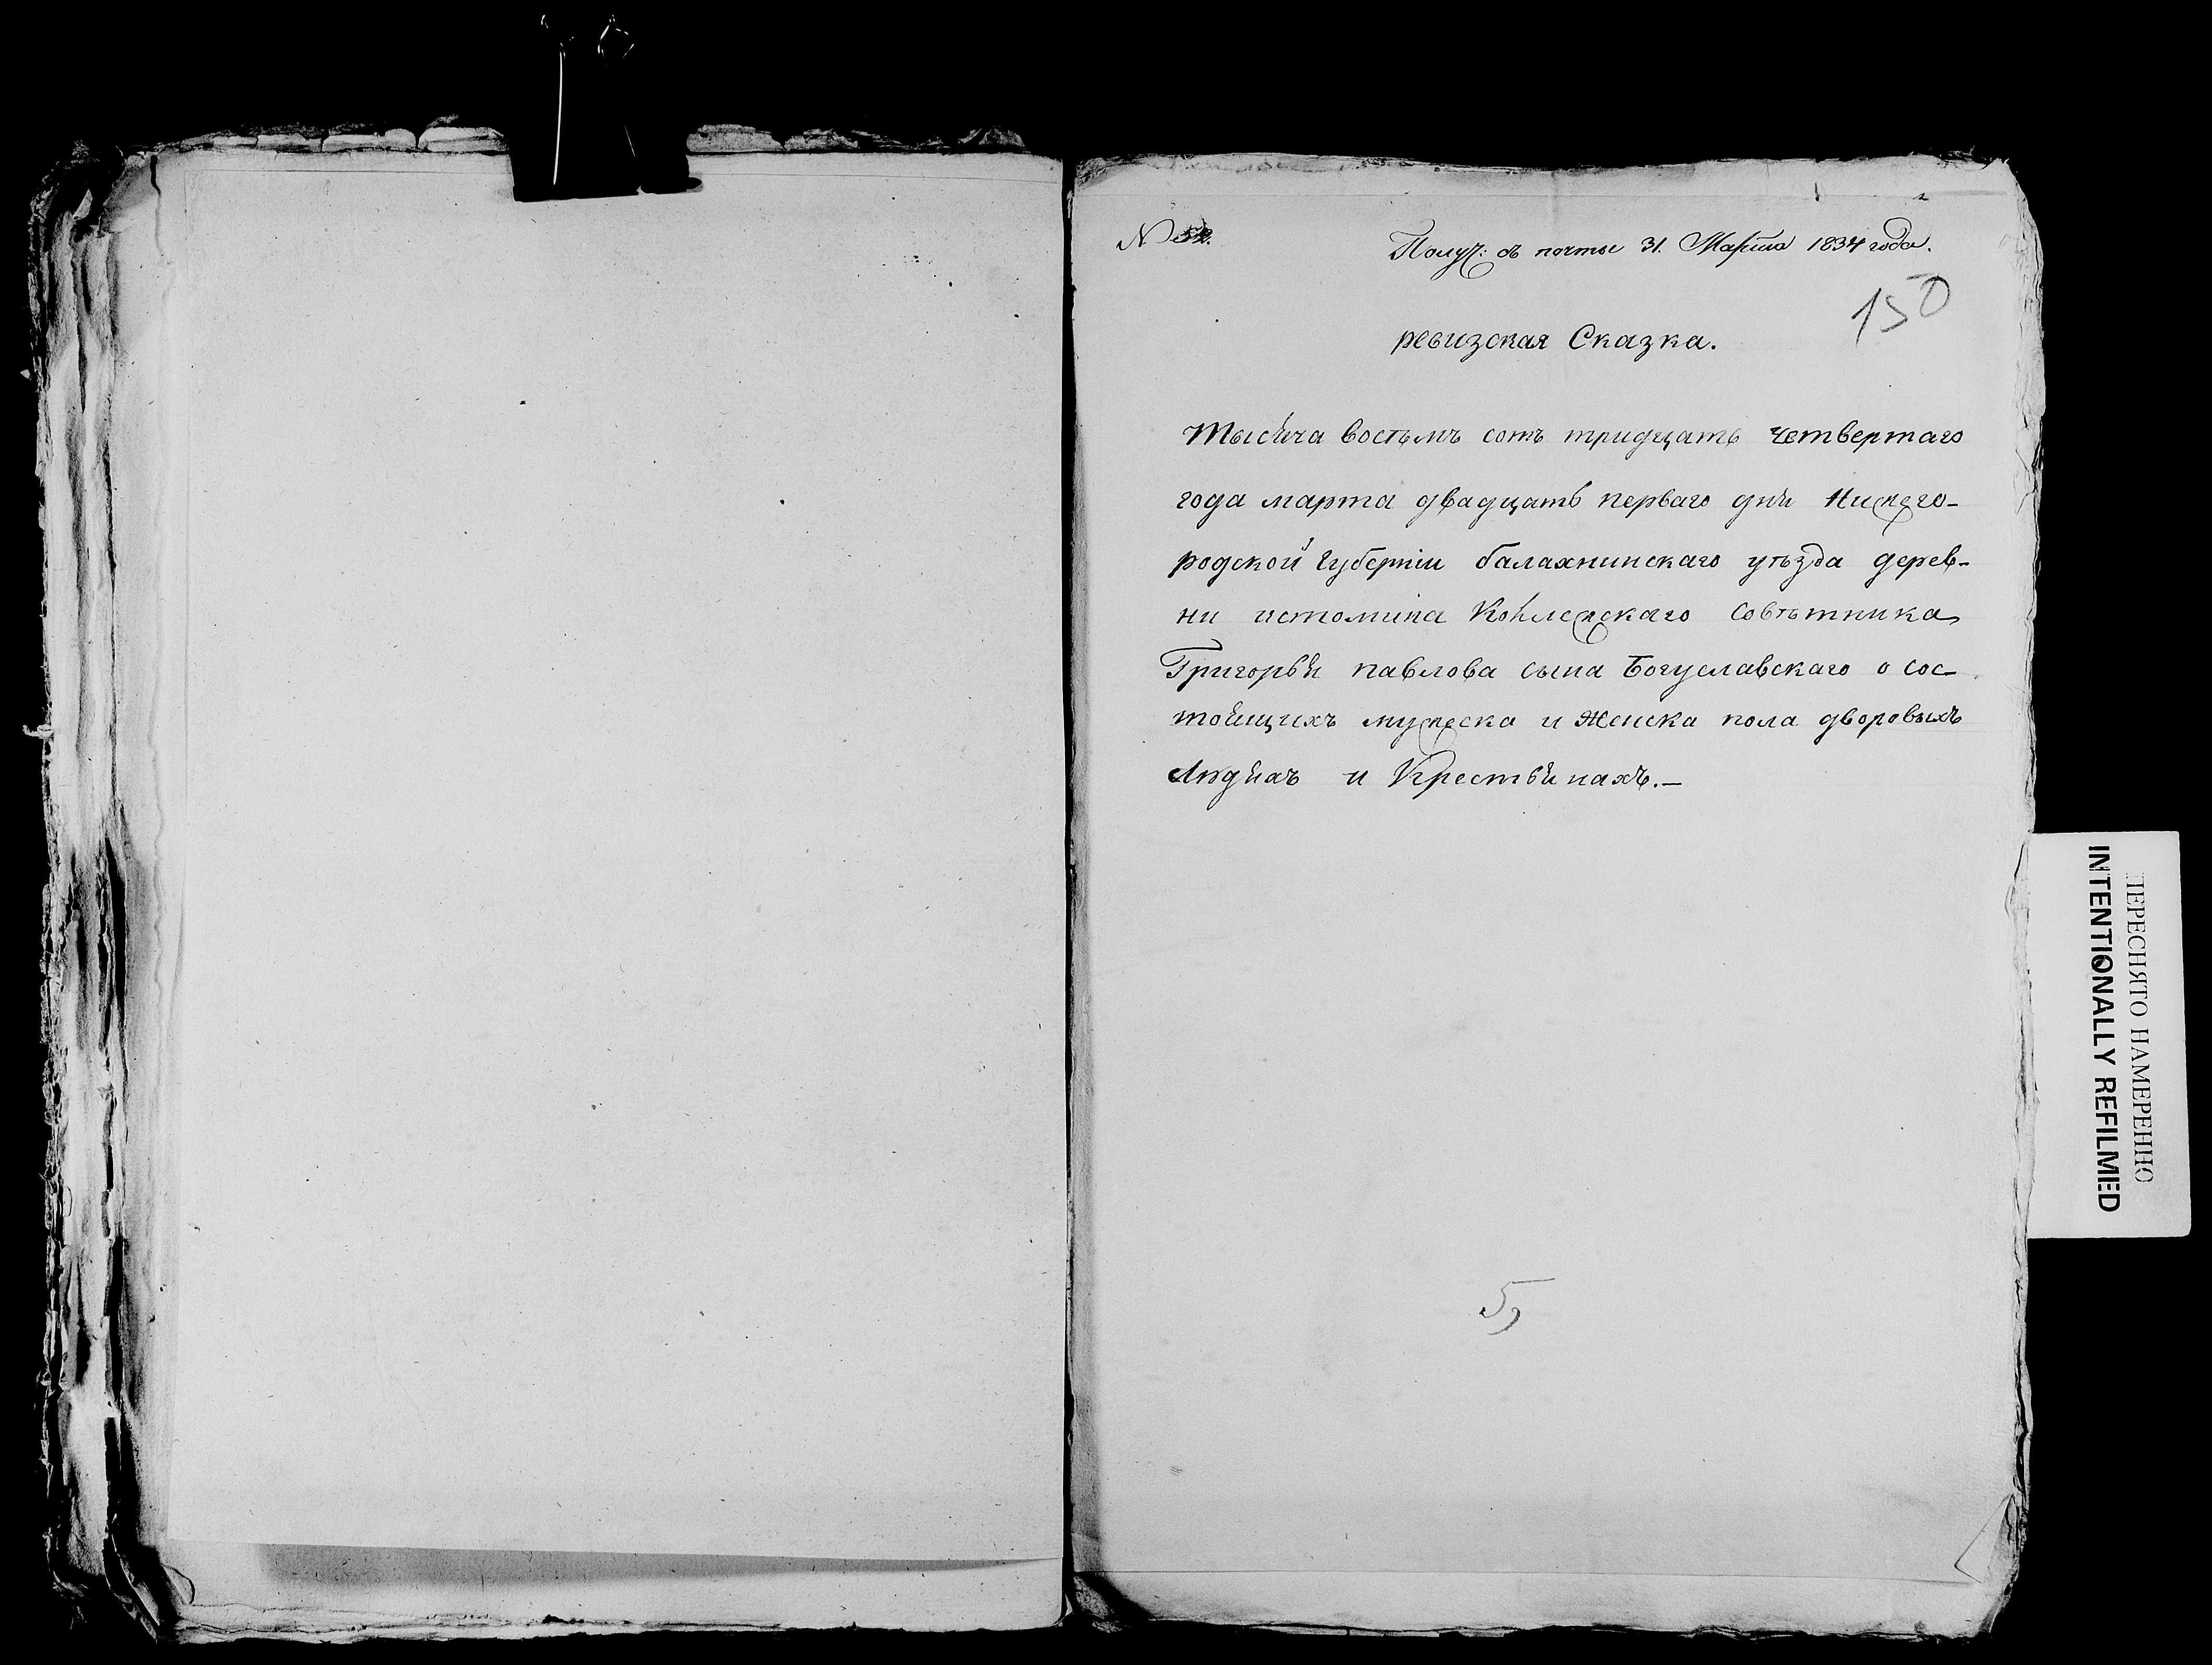 N 52.
Получ: съ почты 31. Марта 1834 года.
150
ревизская Сказка.
Тысяча восѣмъ сотъ тридцать четвертаго
года марта двадцать перваго дня Нижего-
родской губерніи балахнинскаго уѣзда дерев-
ни истомина Колежскаго совѣтника
Григорья павлова сына Богуславскаго о сос
тоящихъ мужеска и женска пола дворовыхъ
людяхъ и Крестьянахъ.—
5,
ПЕРЕСНЯТО НАМЕРЕННО
INTENTIONALLY REFILMED